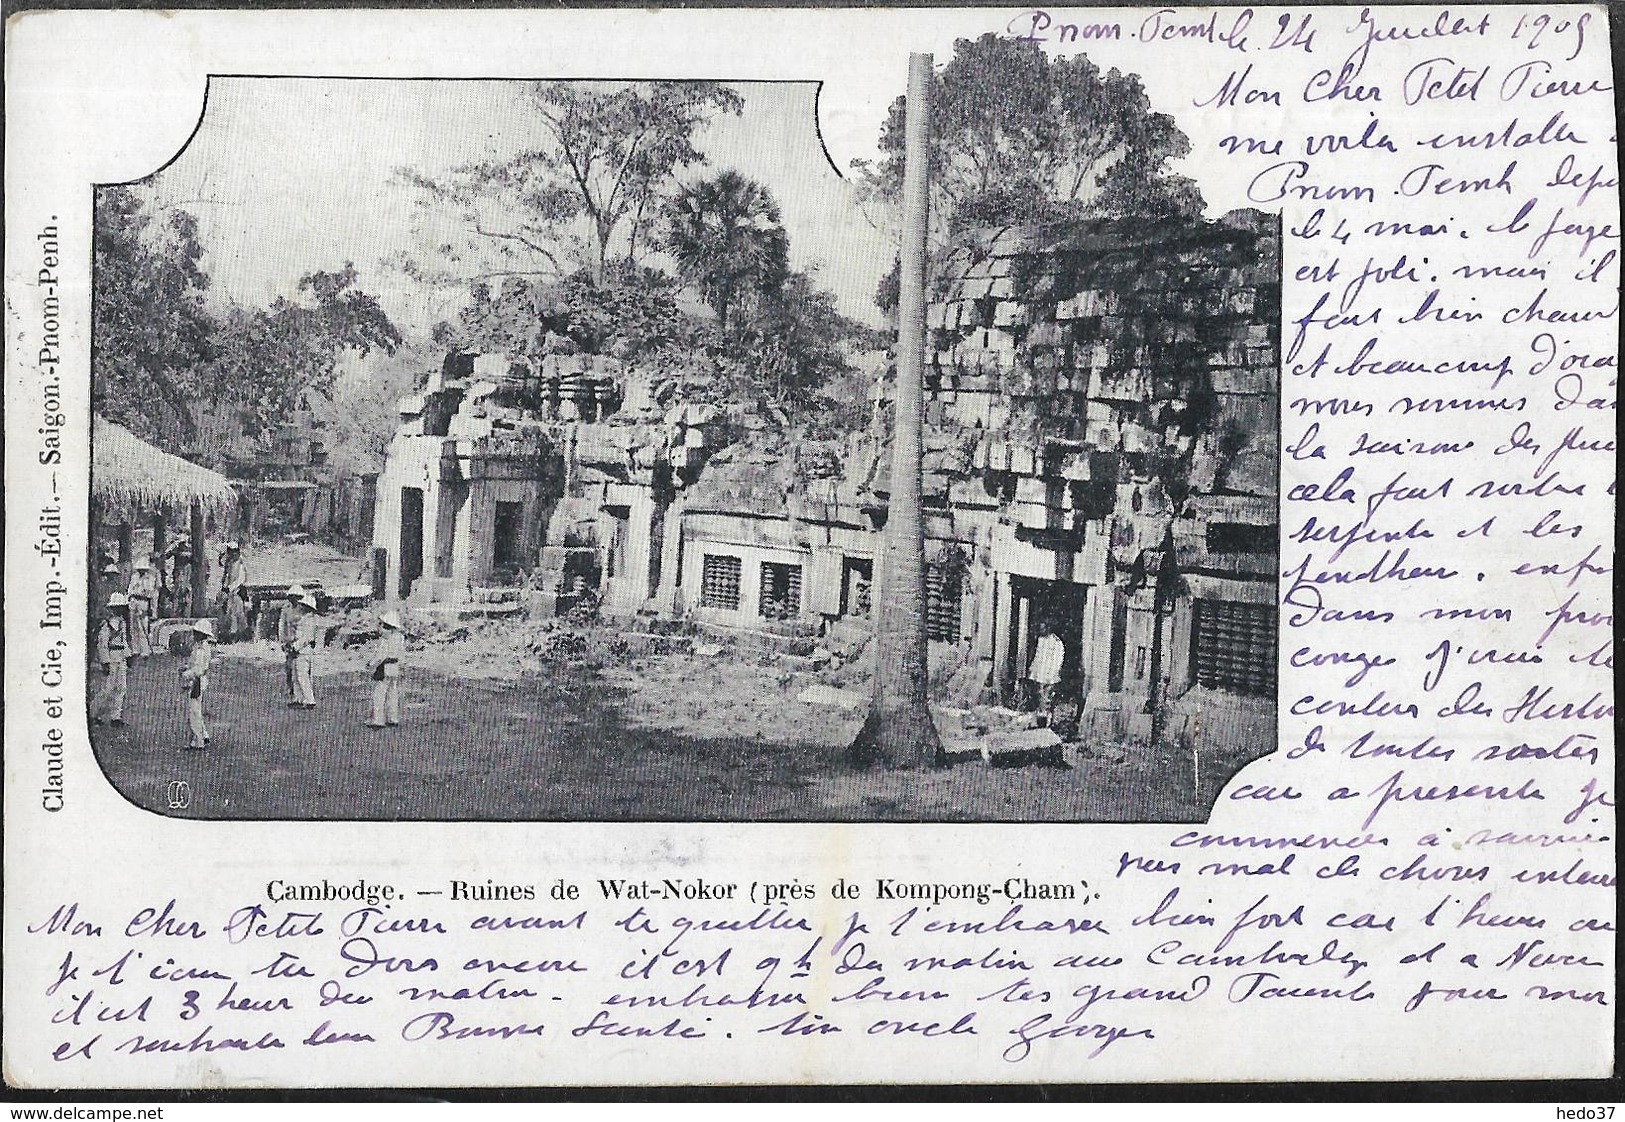 Pnom-Penh le 24 Juillet 1905
Mon Cher Petit Pierre
me voila installer
Pnom-Penh depu
le 4 mai. le paye
est joli. mais il
fait bien chaud
et beaucoup d'orag
nous sommes dan
la saison des plui
cela fait sortir
serpents et les
. enfi
dans mon proc
conger j'irai te
conter des Histoi
de toutes sortes
car a presente je
commences à savoir
pas mal de choses
Cambodge. — Ruines de Wat-Nokor (près de Kompong-Cham).
Claude et Cie, Imp.-Édit.— Saigon.-Pnom-Penh.
Mon Cher Petit Pierre avant te quitter je t'embrasse bien fort car l'heure ou
je t'écri tu dors encore il est 9h du matin au Cambodge et a
il est 3 heur du matin - embrasse bien tes grand Parents pour moi
et souhaite leur Bonne Santé. ton oncle Georges
delcampe.net
hedo37